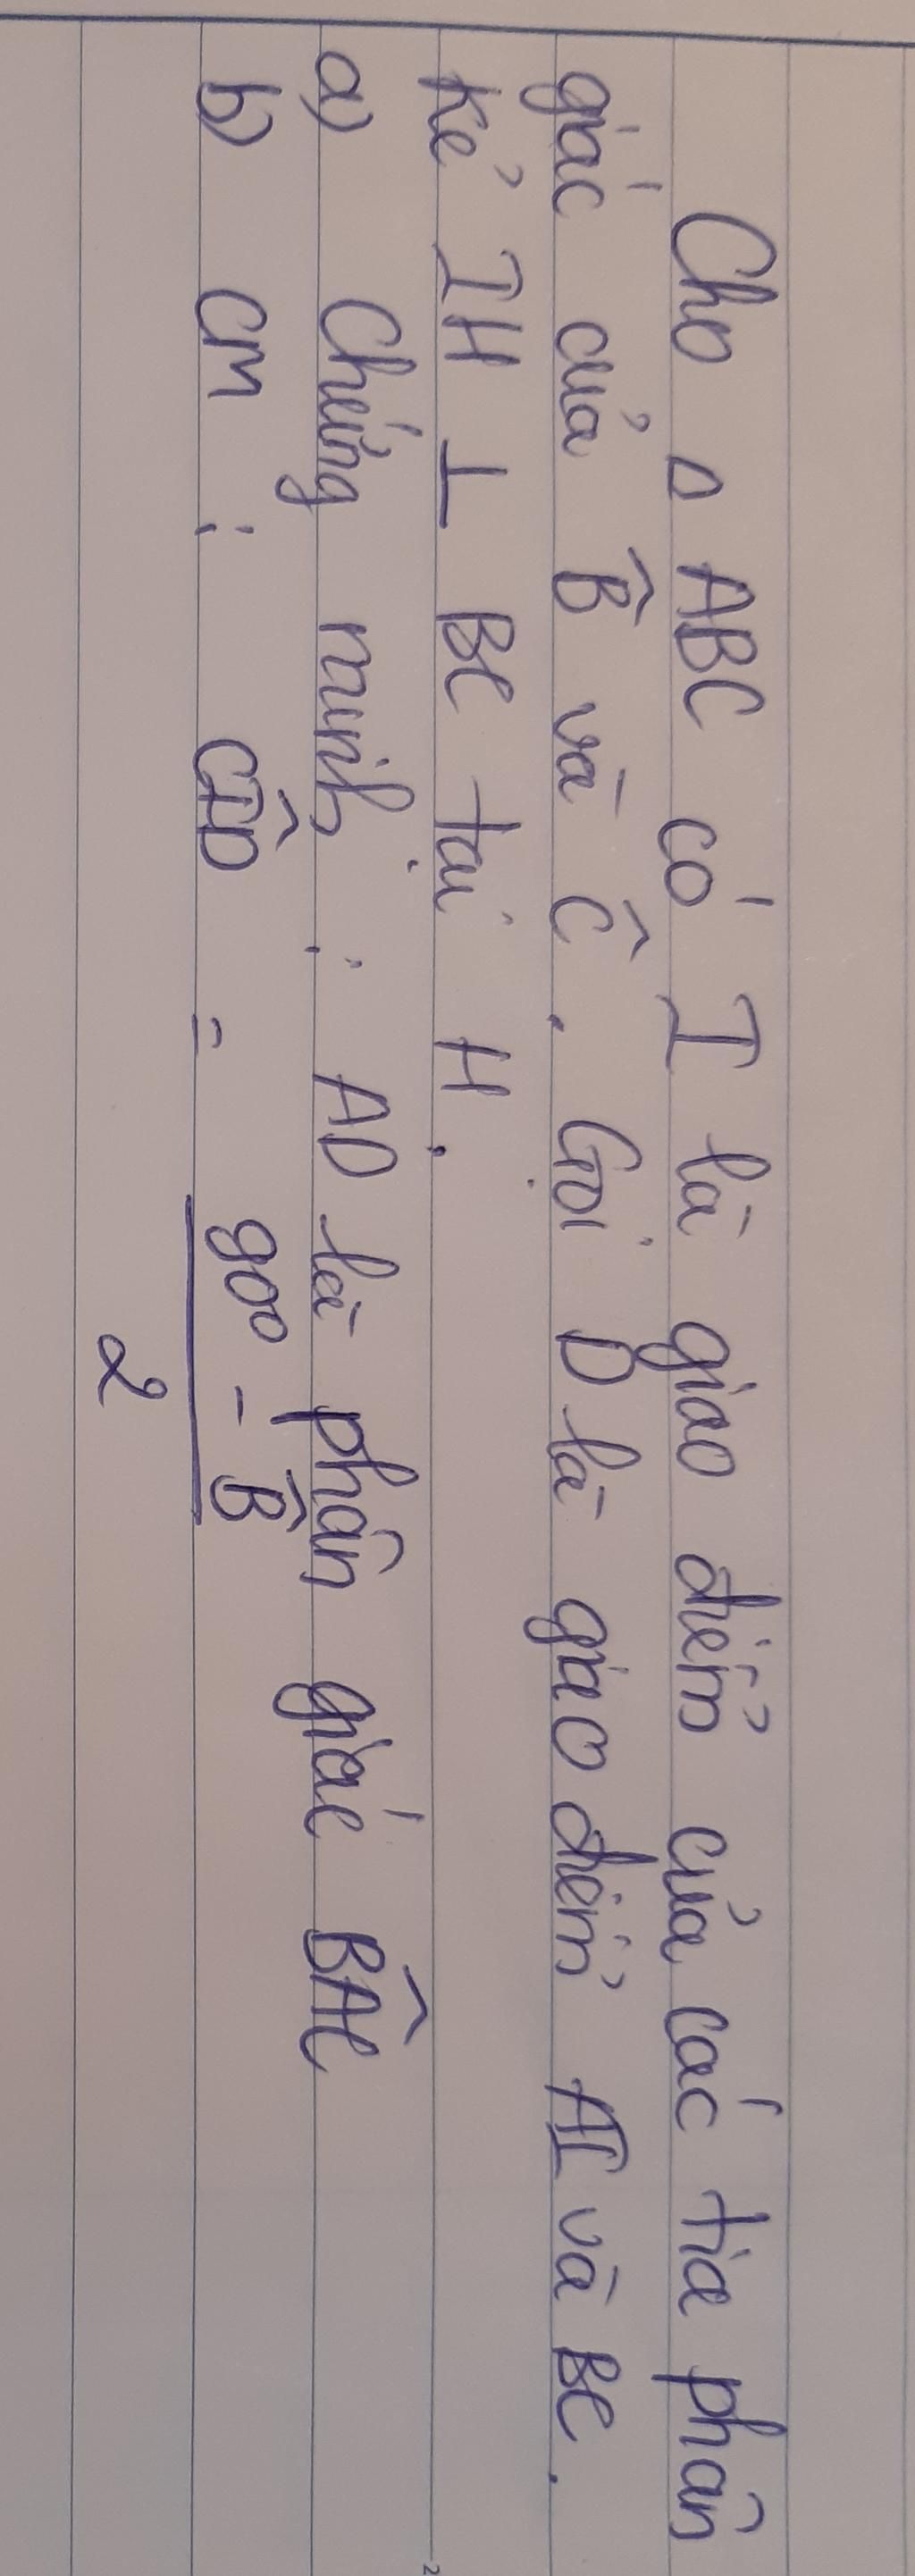 Cho △ ABC có I là giao điểm của các tia phân
giác của B̂ và Ĉ. Gọi D là giao điểm AI và BC.
Kẻ IH ⊥ BC tại H.
a) Chứng minh : AD là phân giác BÂC
b) CM : CÎD = (90° - B̂)/2
2